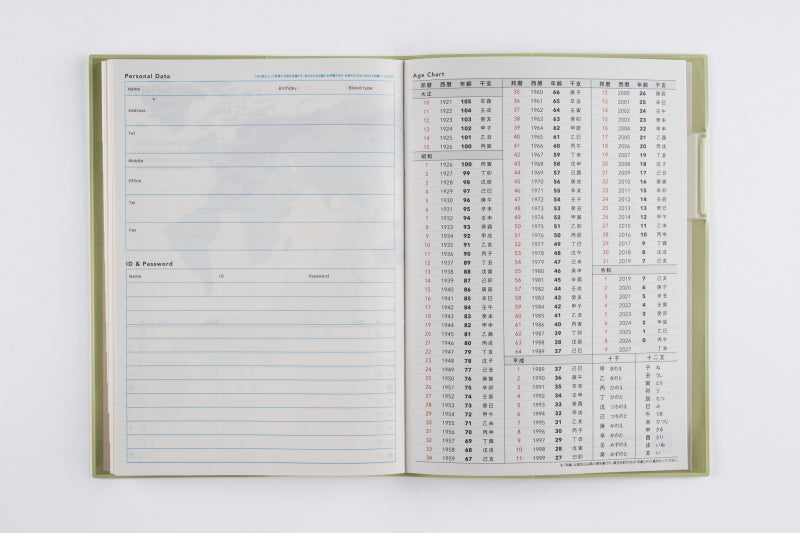 Personal Data
Name Birthday Blood type
Address
Tel
Mobile
Office
Tel
Fax
ID & Password
Name ID Password
Age Chart
邦暦 西暦 年齢 干支
大正
10 1921 105 辛酉
11 1922 104 壬戌
12 1923 103 癸亥
13 1924 102 甲子
14 1925 101 乙丑
15 1926 100 丙寅
昭和
1 1926 100 丙寅
2 1927 99 丁卯
3 1928 98 戊辰
4 1929 97 己巳
5 1930 96 庚午
6 1931 95 辛未
7 1932 94 壬申
8 1933 93 癸酉
9 1934 92 甲戌
10 1935 91 乙亥
11 1936 90 丙子
12 1937 89 丁丑
13 1938 88 戊寅
14 1939 87 己卯
15 1940 86 庚辰
16 1941 85 辛巳
17 1942 84 壬午
18 1943 83 癸未
19 1944 82 甲申
20 1945 81 乙酉
21 1946 80 丙戌
22 1947 79 丁亥
23 1948 78 戊子
24 1949 77 己丑
25 1950 76 庚寅
26 1951 75 辛卯
27 1952 74 壬辰
28 1953 73 癸巳
29 1954 72 甲午
30 1955 71 乙未
31 1956 70 丙申
32 1957 69 丁酉
33 1958 68 戊戌
34 1959 67 己亥
邦暦 西暦 年齢 干支
35 1960 66 庚子
36 1961 65 辛丑
37 1962 64 壬寅
38 1963 63 癸卯
39 1964 62 甲辰
40 1965 61 乙巳
41 1966 60 丙午
42 1967 59 丁未
43 1968 58 戊申
44 1969 57 己酉
45 1970 56 庚戌
46 1971 55 辛亥
47 1972 54 壬子
48 1973 53 癸丑
49 1974 52 甲寅
50 1975 51 乙卯
51 1976 50 丙辰
52 1977 49 丁巳
53 1978 48 戊午
54 1979 47 己未
55 1980 46 庚申
56 1981 45 辛酉
57 1982 44 壬戌
58 1983 43 癸亥
59 1984 42 甲子
60 1985 41 乙丑
61 1986 40 丙寅
62 1987 39 丁卯
63 1988 38 戊辰
64 1989 37 己巳
平成
1 1989 37 己巳
2 1990 36 庚午
3 1991 35 辛未
4 1992 34 壬申
5 1993 33 癸酉
6 1994 32 甲戌
7 1995 31 乙亥
8 1996 30 丙子
9 1997 29 丁丑
10 1998 28 戊寅
11 1999 27 己卯
邦暦 西暦 年齢 干支
12 2000 26 庚辰
13 2001 25 辛巳
14 2002 24 壬午
15 2003 23 癸未
16 2004 22 甲申
17 2005 21 乙酉
18 2006 20 丙戌
19 2007 19 丁亥
20 2008 18 戊子
21 2009 17 己丑
22 2010 16 庚寅
23 2011 15 辛卯
24 2012 14 壬辰
25 2013 13 癸巳
26 2014 12 甲午
27 2015 11 乙未
28 2016 10 丙申
29 2017 9 丁酉
30 2018 8 戊戌
31 2019 7 己亥
令和
1 2019 7 己亥
2 2020 6 庚子
3 2021 5 辛丑
4 2022 4 壬寅
5 2023 3 癸卯
6 2024 2 甲辰
7 2025 1 乙巳
8 2026 0 丙午
9 2027 丁未
十干 十二支
甲 きのえ 子 ね
乙 きのと 丑 うし
丙 ひのえ 寅 とら
丁 ひのと 卯 う
戊 つちのえ 辰 たつ
己 つちのと 巳 み
庚 かのえ 午 うま
辛 かのと 未 ひつじ
壬 みずのえ 申 さる
癸 みずのと 酉 とり
戌 いぬ
亥 い